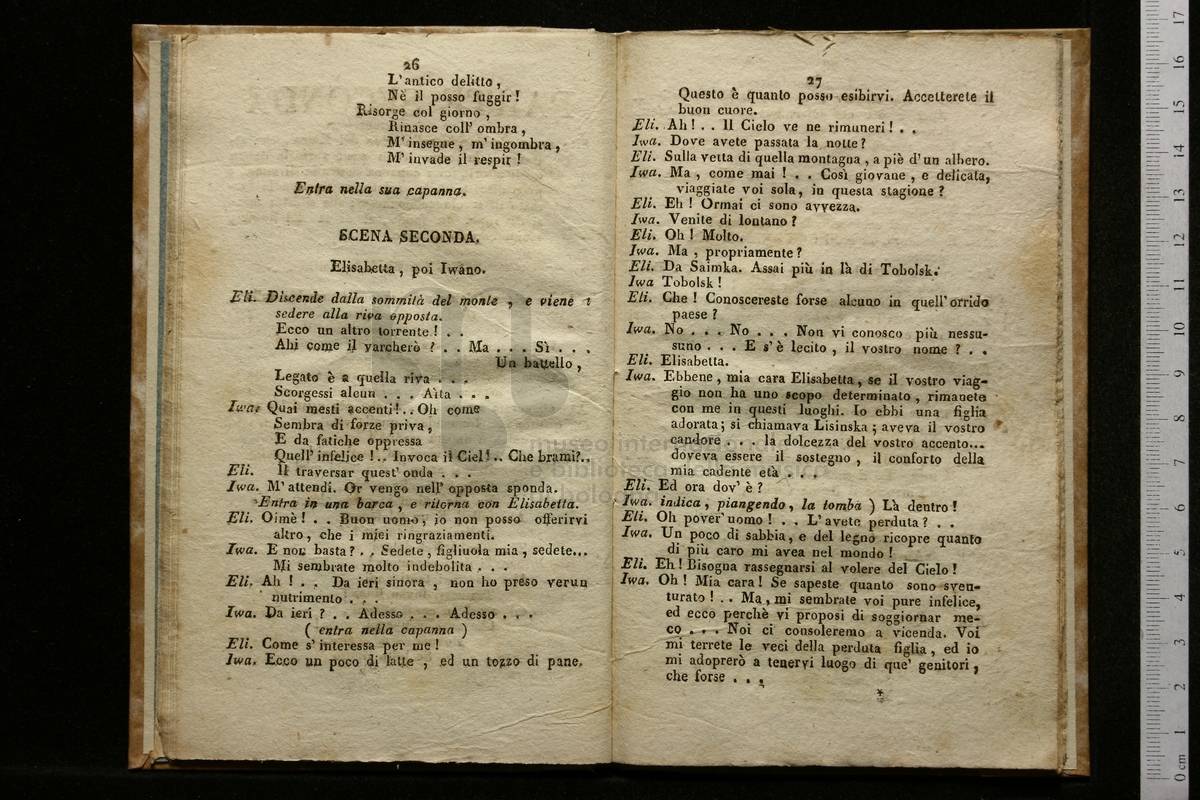 26
L'antico delitto,
Nè il posso fuggir!
Risorge col giorno,
Rinasce coll' ombra,
M' insegue, m' ingombra,
M' invade il respir!
Entra nella sua capanna.
SCENA SECONDA.
Elisabetta, poi Iwano.
Eli. Discende dalla sommità del monte, e viene
sedere alla riva opposta.
Ecco un altro torrente! . .
Ahi come il varcherò? . . Ma . . . Sì . . .
Un battello,
Legato è a quella riva . . .
Scorgessi alcun . . . Aita . . .
Iwa. Quai mesti accenti!.. Oh come
Sembra di forze priva,
E da fatiche oppressa
Quell' infelice!.. Invoca il Ciel!.. Che brami?..
Eli. Il traversar quest' onda . . .
Iwa. M' attendi. Or vengo nell' opposta sponda.
Entra in una barca, e ritorna con Elisabetta.
Eli. Oimè! . . Buon uomo, io non posso offerirvi
altro, che i miei ringraziamenti.
Iwa. E non basta? . . Sedete, figliuola mia, sedete...
Mi sembrate molto indebolita . . .
Eli. Ah! . . Da ieri sinora, non ho preso verun
nutrimento . . .
Iwa. Da ieri? . . Adesso . . . Adesso . . .
( entra nella capanna )
Eli. Come s' interessa per me!
Iwa. Ecco un poco di latte, ed un tozzo di pane.
27
Questo è quanto posso esibirvi. Accetterete il
buon cuore.
Eli. Ah! . . Il Cielo ve ne rimuneri! . .
Iwa. Dove avete passata la notte?
Eli. Sulla vetta di quella montagna, a piè d' un albero.
Iwa. Ma, come mai! . . Così giovane, e delicata,
viaggiate voi sola, in questa stagione?
Eli. Eh! Ormai ci sono avvezza.
Iwa. Venite di lontano?
Eli. Oh! Molto.
Iwa. Ma, propriamente?
Eli. Da Saimka. Assai più in là di Tobolsk.
Iwa Tobolsk!
Eli. Che! Conoscereste forse alcuno in quell' orrido
paese?
Iwa. No . . . No . . . Non vi conosco più nessu-
suno . . . E s' è lecito, il vostro nome? . .
Eli. Elisabetta.
Iwa. Ebbene, mia cara Elisabetta, se il vostro viag-
gio non ha uno scopo determinato, rimanete
con me in questi luoghi. Io ebbi una figlia
adorata; si chiamava Lisinska; aveva il vostro
candore . . . la dolcezza del vostro accento...
doveva essere il sostegno, il conforto della
mia cadente età . . .
Eli. Ed ora dov' è?
Iwa. indica, piangendo, la tomba ) Là dentro!
Eli. Oh pover' uomo! . . L' avete perduta? . .
Iwa. Un poco di sabbia, e del legno ricopre quanto
di più caro mi avea nel mondo!
Eli. Eh! Bisogna rassegnarsi al volere del Cielo!
Iwa. Oh! Mia cara! Se sapeste quanto sono sven-
turato! . . Ma, mi sembrate voi pure infelice,
ed ecco perchè vi proposi di soggiornar me-
co . . . Noi ci consoleremo a vicenda. Voi
mi terrete le veci della perduta figlia, ed io
mi adoprerò a tenervi luogo di que' genitori,
che forse . . .
*